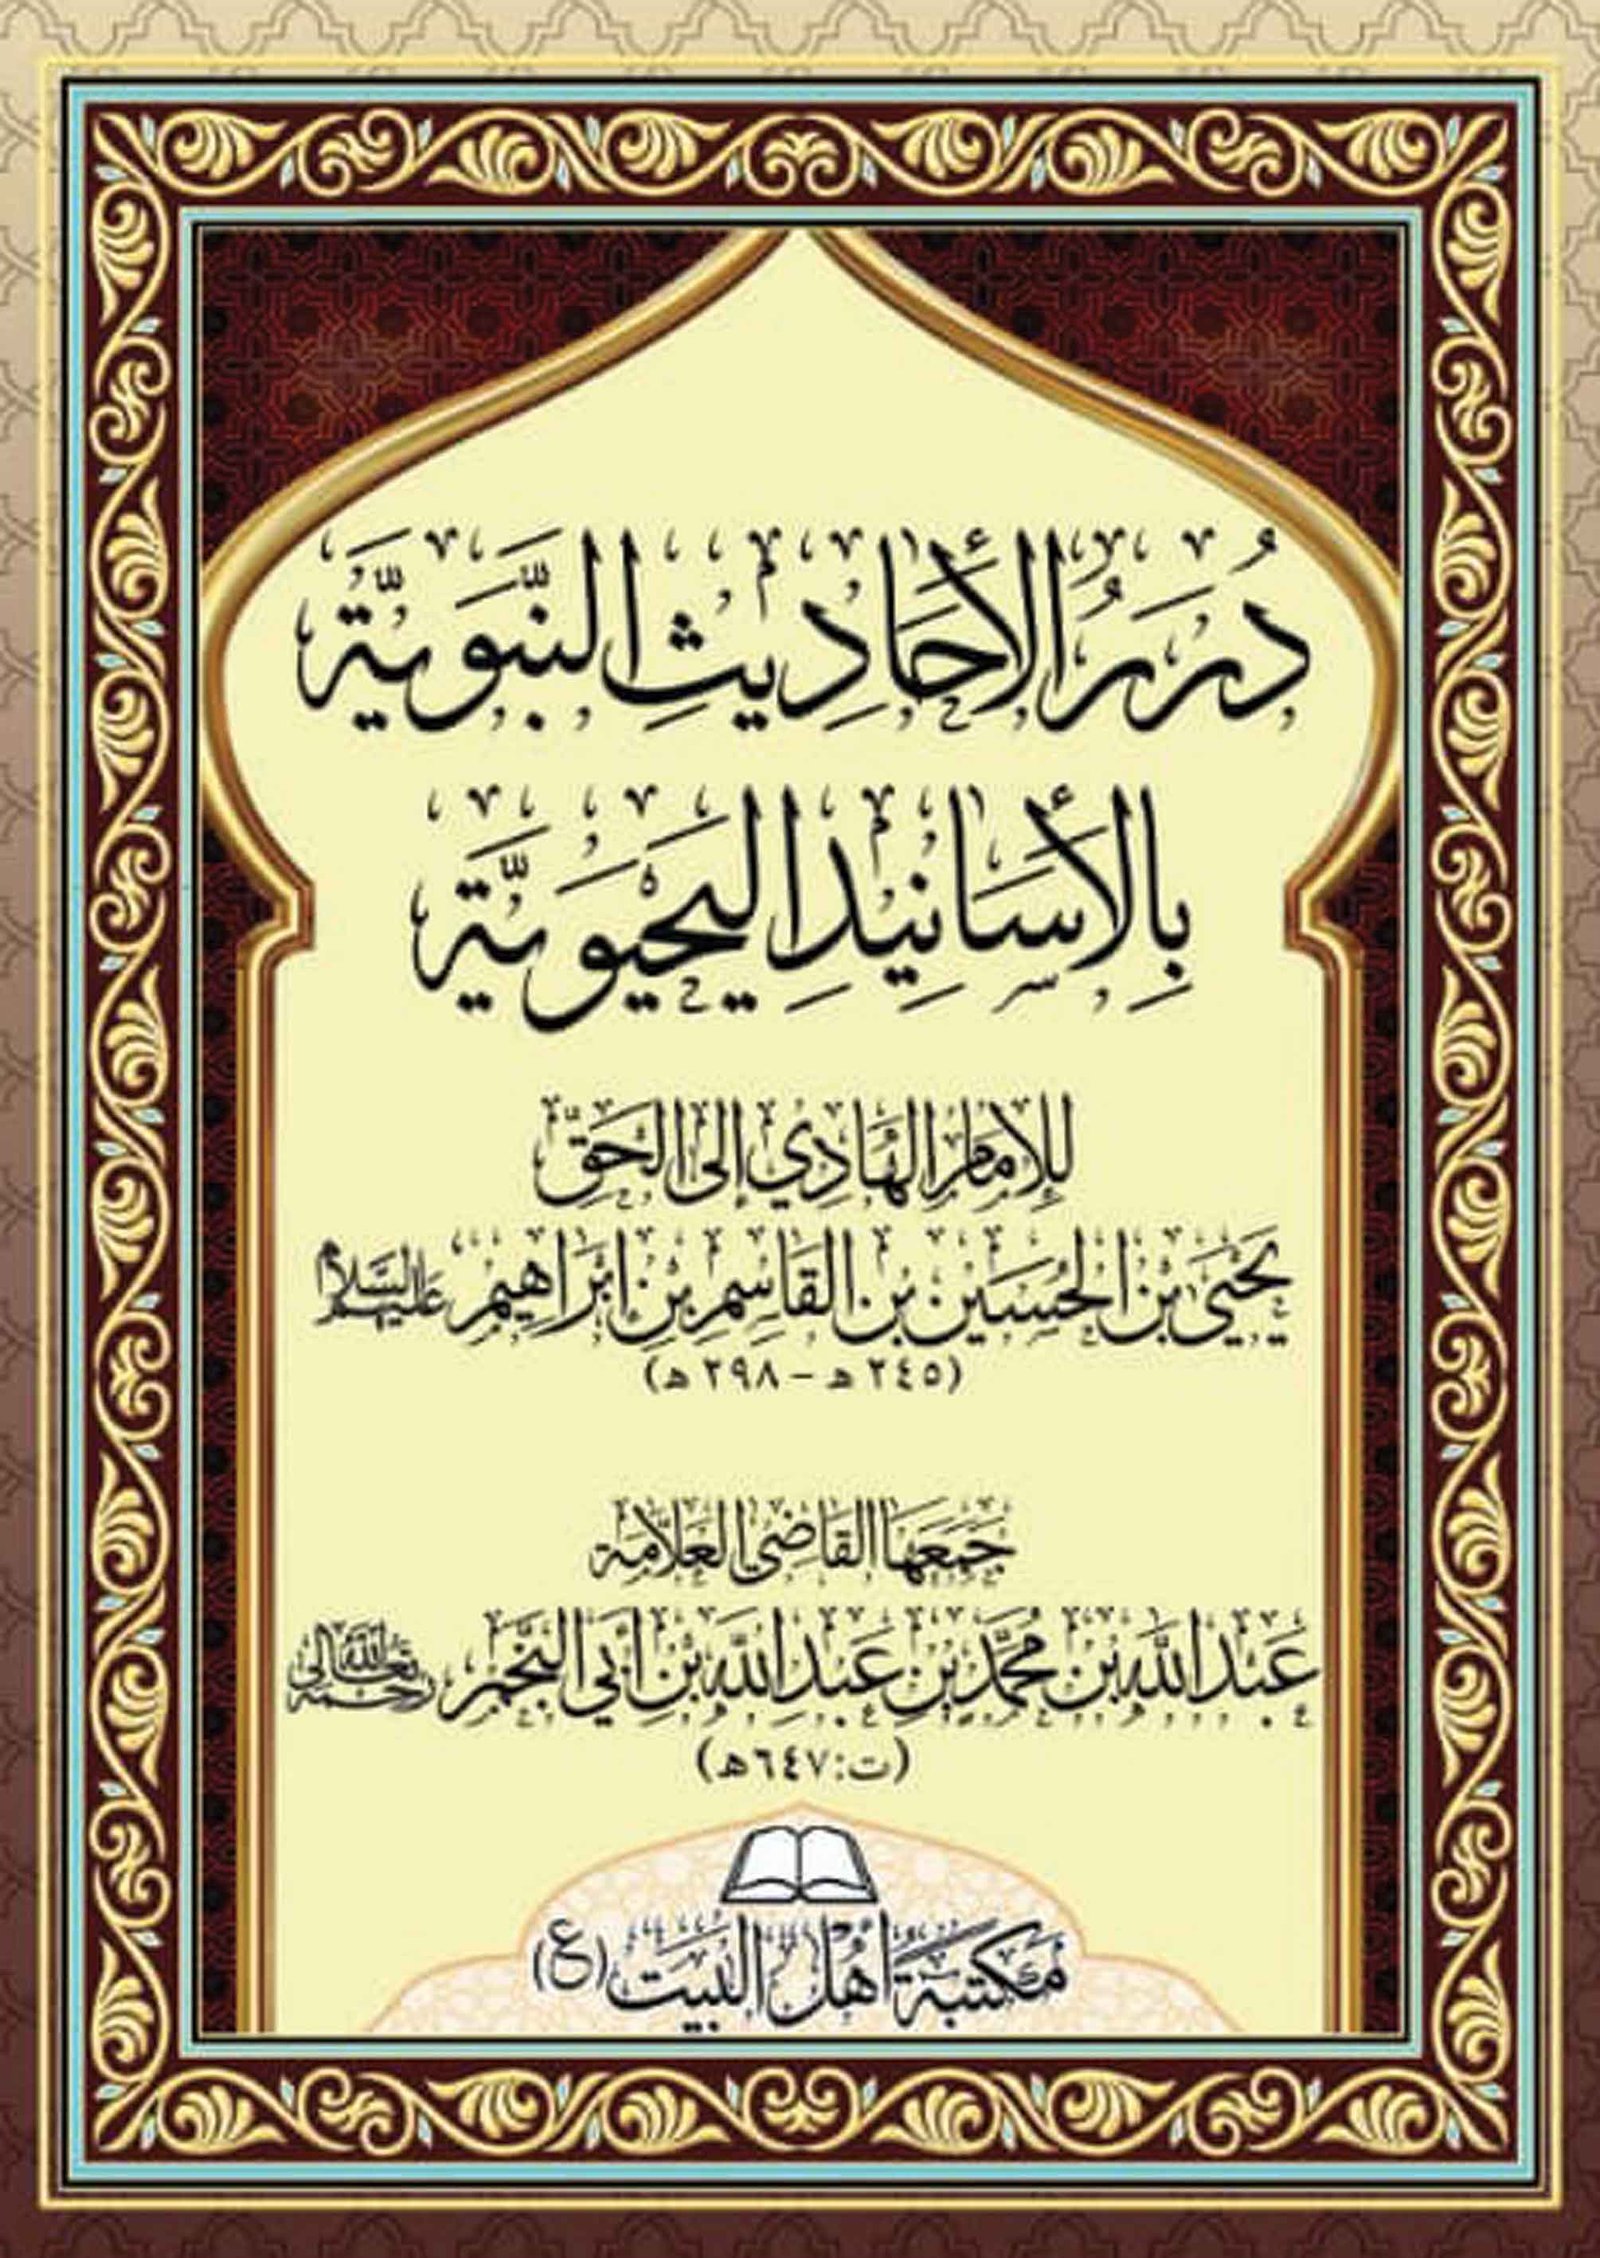 دُرَرُ الأَحَادِيثِ النَّبَوِيَّة
بِالأَسَانِيدِ اليَحْيَوِيَّة
لِلإِمَامِ الهَادِي إِلَى الحَقِّ
يَحْيَى بْنِ الحُسَيْنِ بْنِ القَاسِمِ بْنِ إِبْرَاهِيم عَلَيْهِمُ السَّلَام
(٢٤٥ هـ – ٢٩٨ هـ)
جَمَعَهَا القَاضِي العَلَّامَة
عَبْدُ اللَّهِ بْنُ مُحَمَّدِ بْنِ عَبْدِ اللَّهِ بْنِ أَبِي النَّجْم رَحِمَهُ اللَّهُ تَعَالَى
(ت: ٦٤٧هـ)
مَكْتَبَةُ أَهْلِ البَيْت (ع)